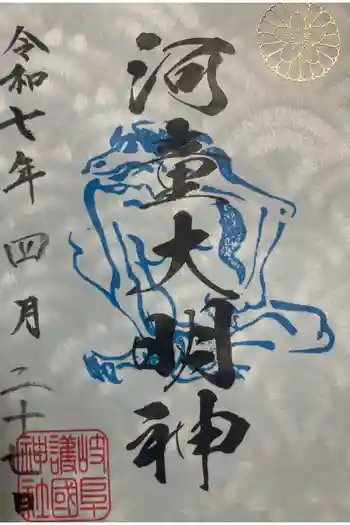 河童大明神
令和七年四月二十七日
岐阜護國神社